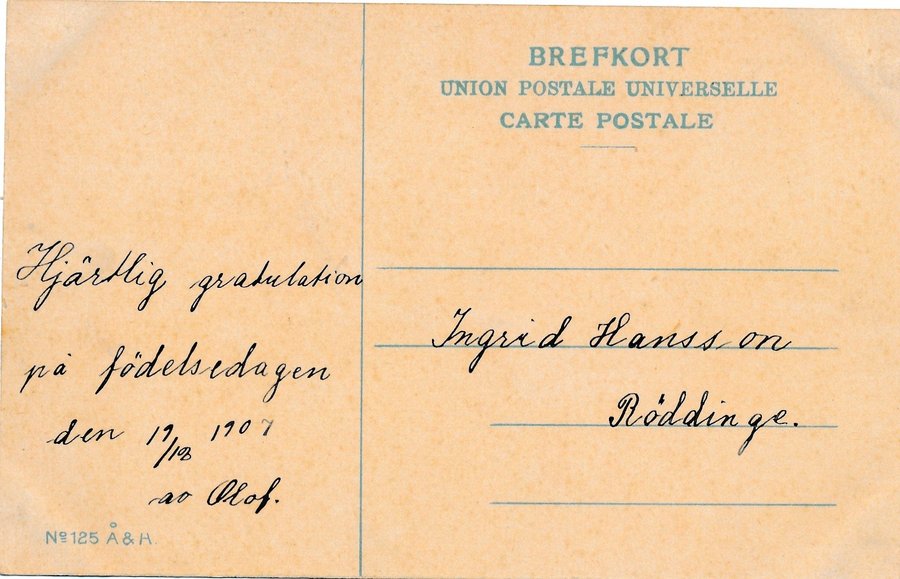 BREFKORT
UNION POSTALE UNIVERSELLE
CARTE POSTALE
Hjärtlig gratulation
på födelsedagen
den 19/ 1907
av Olof.
Ingrid Hansson
Röddinge.
Nº 125 Å & H.